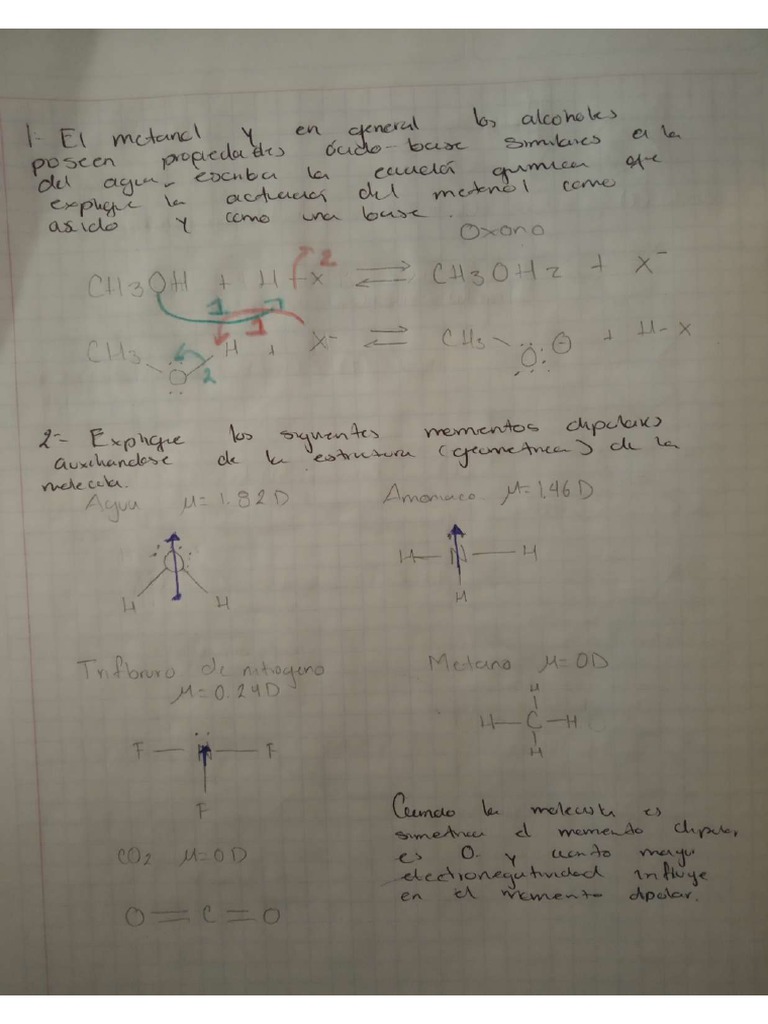 1- El metanol y en general los alcoholes
poseen propiedades ácido-base similares a la
del agua- escriba la ecuación química que
explique la actuación del metanol como
asido y como una base.
Oxono
CH3OH + H-X ⇌ CH3OH2 + X⁻
1 2
1
CH3 O H + X⁻ ⇌ CH3 O ⊖ + H-X
2
2- Explique los siguientes momentos dipolares
auxiliandose de la estructura (geometrica) de la
molecula.
Agua μ=1.82D Amoniaco μ=1.46D
O H—N—H
H H H
Trifloruro de nitrogeno Metano μ=0D
μ=0.24D
H
F—N—F H—C—H
F H
CO2 μ=0D
O=C=O
Cuando la molecula es
simetrica el momento dipolar
es 0. y cuanto mayor
electronegatividad influye
en el momento dipolar.